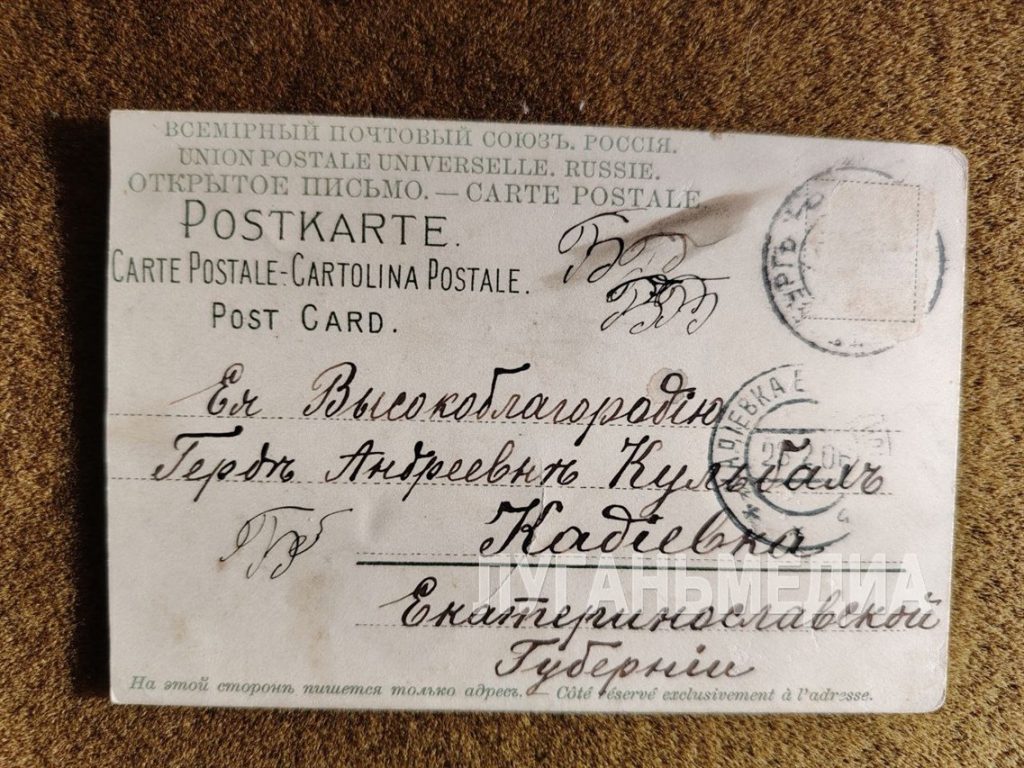 ВСЕМІРНЫЙ ПОЧТОВЫЙ СОЮЗЪ. РОССІЯ.
UNION POSTALE UNIVERSELLE. RUSSIE.
ОТКРЫТОЕ ПИСЬМО. — CARTE POSTALE
POSTKARTE.
CARTE POSTALE-CARTOLINA POSTALE.
POST CARD.
Ея Высокоблагородію
Гердѣ Андреевнѣ Кульбахъ
Кадіевка
ЛУГАНЬМЕДИА
Екатеринославской
Губерніи
На этой сторонѣ пишется только адресъ. — Côté réservé exclusivement à l'adresse.